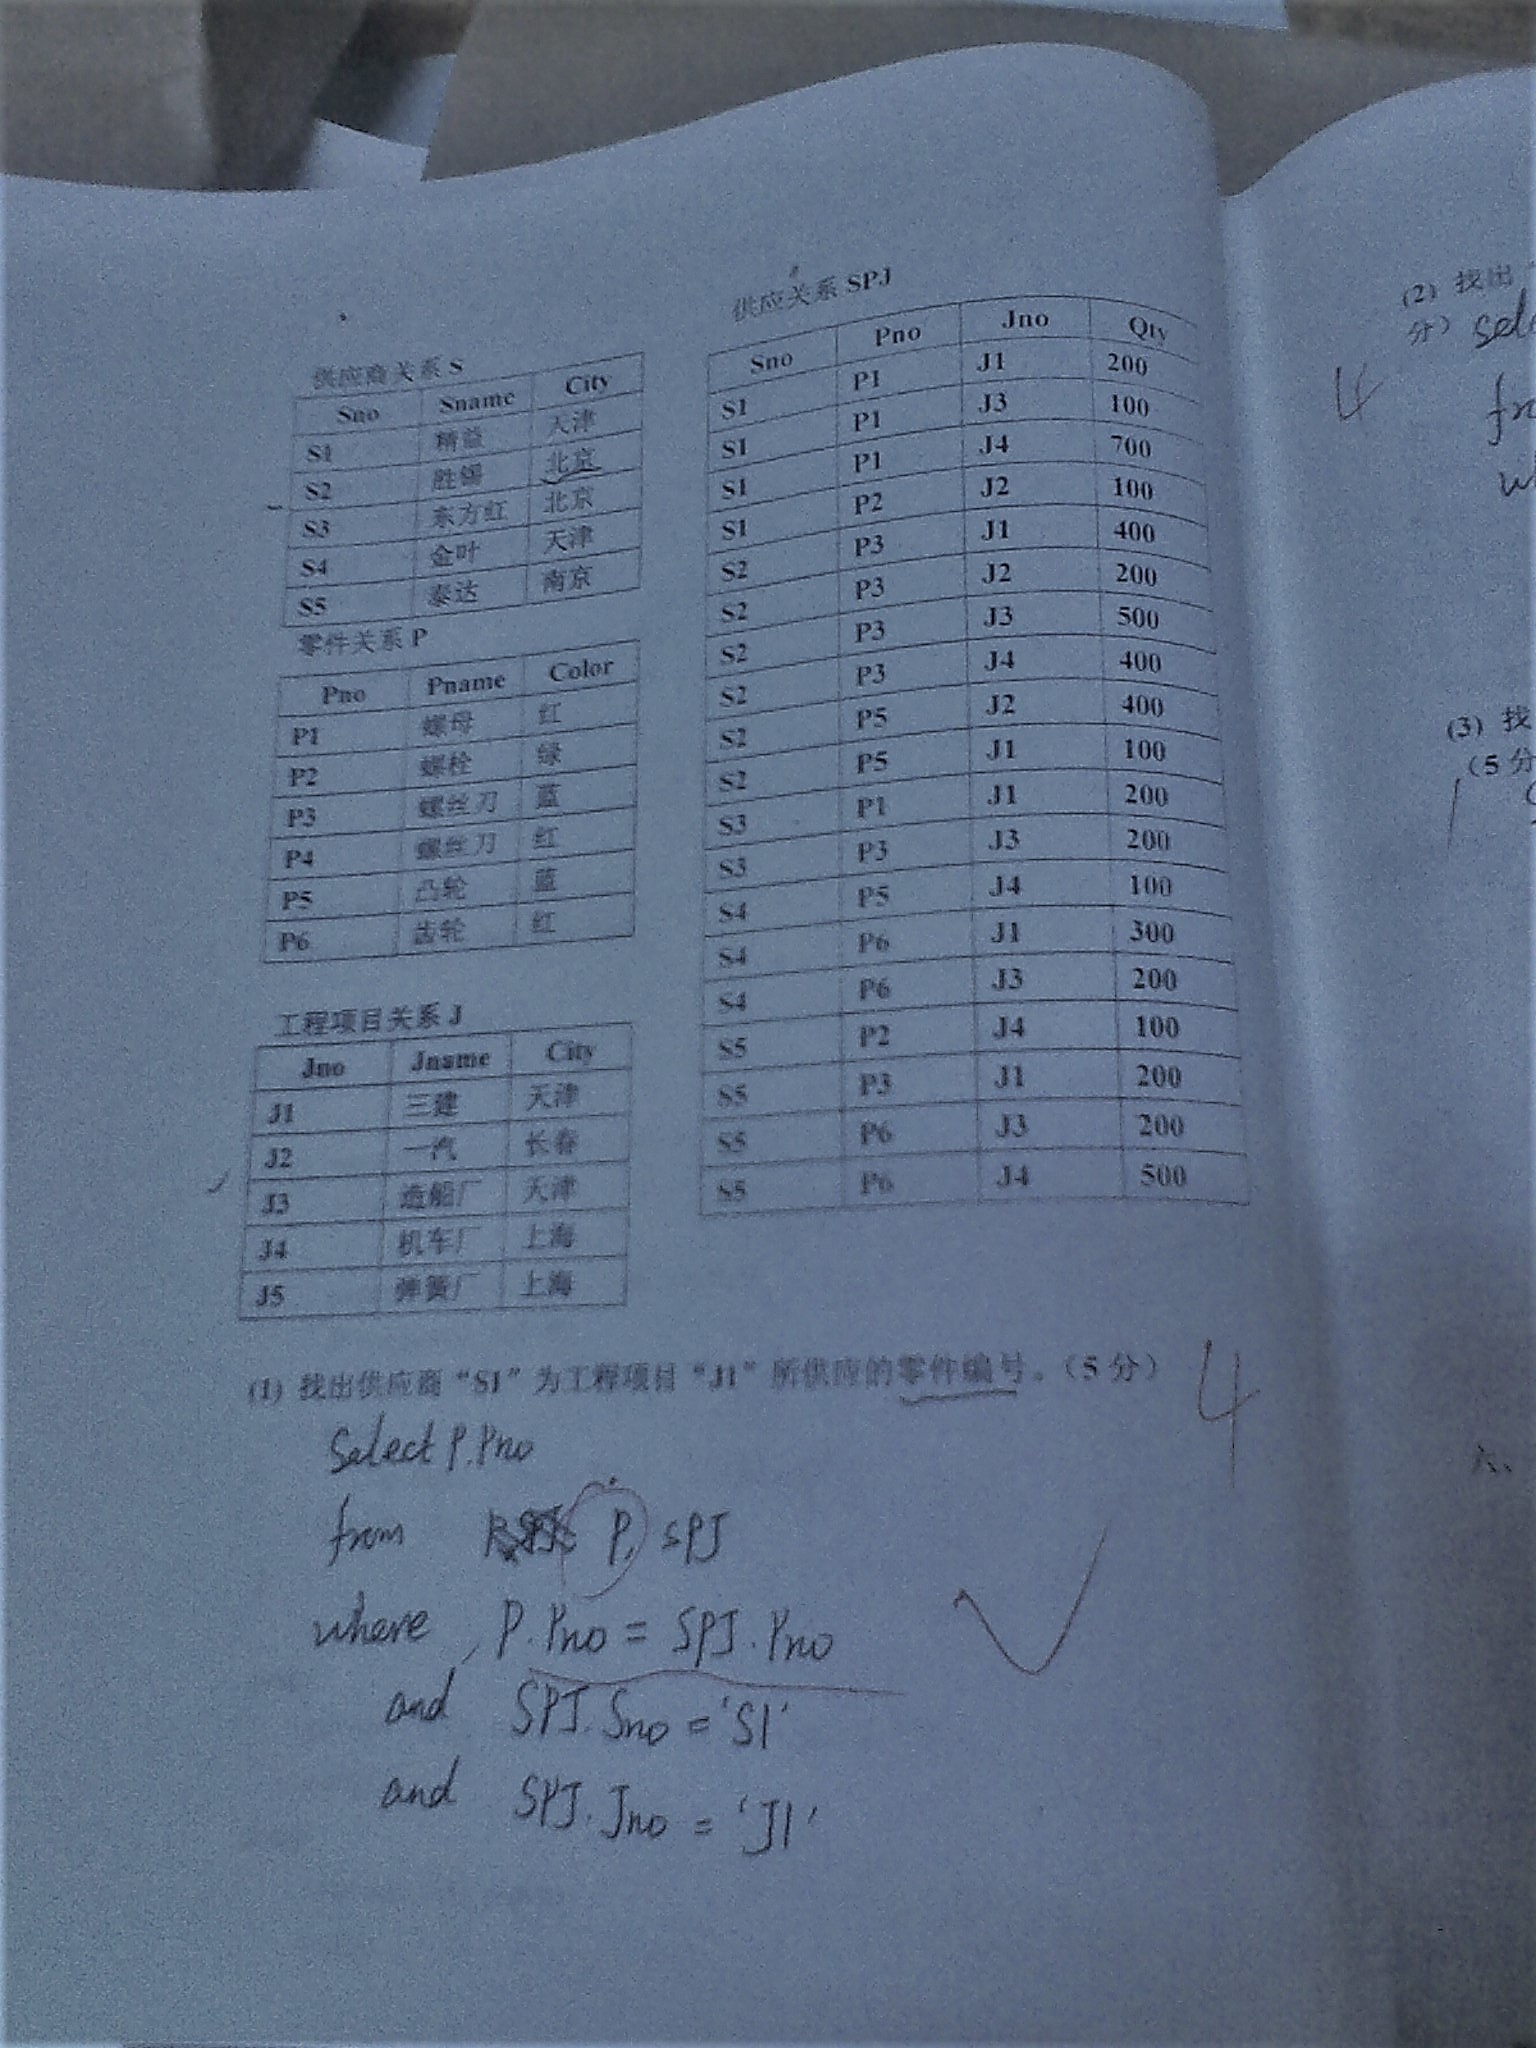 供应商关系 S
Sno Sname City
S1 精益 天津
S2 胜锡 北京
S3 东方红 北京
S4 金叶 天津
S5 泰达 南京
零件关系 P
Pno Pname Color
P1 螺母 红
P2 螺栓 绿
P3 螺丝刀 蓝
P4 螺丝刀 红
P5 凸轮 蓝
P6 齿轮 红
工程项目关系 J
Jno Jname City
J1 三建 天津
J2 一汽 长春
J3 造船厂 天津
J4 机车厂 上海
J5 弹簧厂 上海
供应关系 SPJ
Sno Pno Jno Qty
S1 P1 J1 200
S1 P1 J3 100
S1 P1 J4 700
S1 P2 J2 100
S2 P3 J1 400
S2 P3 J2 200
S2 P3 J3 500
S2 P3 J4 400
S2 P5 J2 400
S2 P5 J1 100
S3 P1 J1 200
S3 P3 J3 200
S4 P5 J4 100
S4 P6 J1 300
S4 P6 J3 200
S5 P2 J4 100
S5 P3 J1 200
S5 P6 J3 200
S5 P6 J4 500
(1) 找出供应商“S1”为工程项目“J1”所供应的零件编号。（5 分） 4
Select P.Pno
from P, SPJ
where P.Pno = SPJ.Pno
and SPJ.Sno = 'S1'
and SPJ.Jno = 'J1'
(2) 找出
分）
4
(3) 找
（5 分
六、